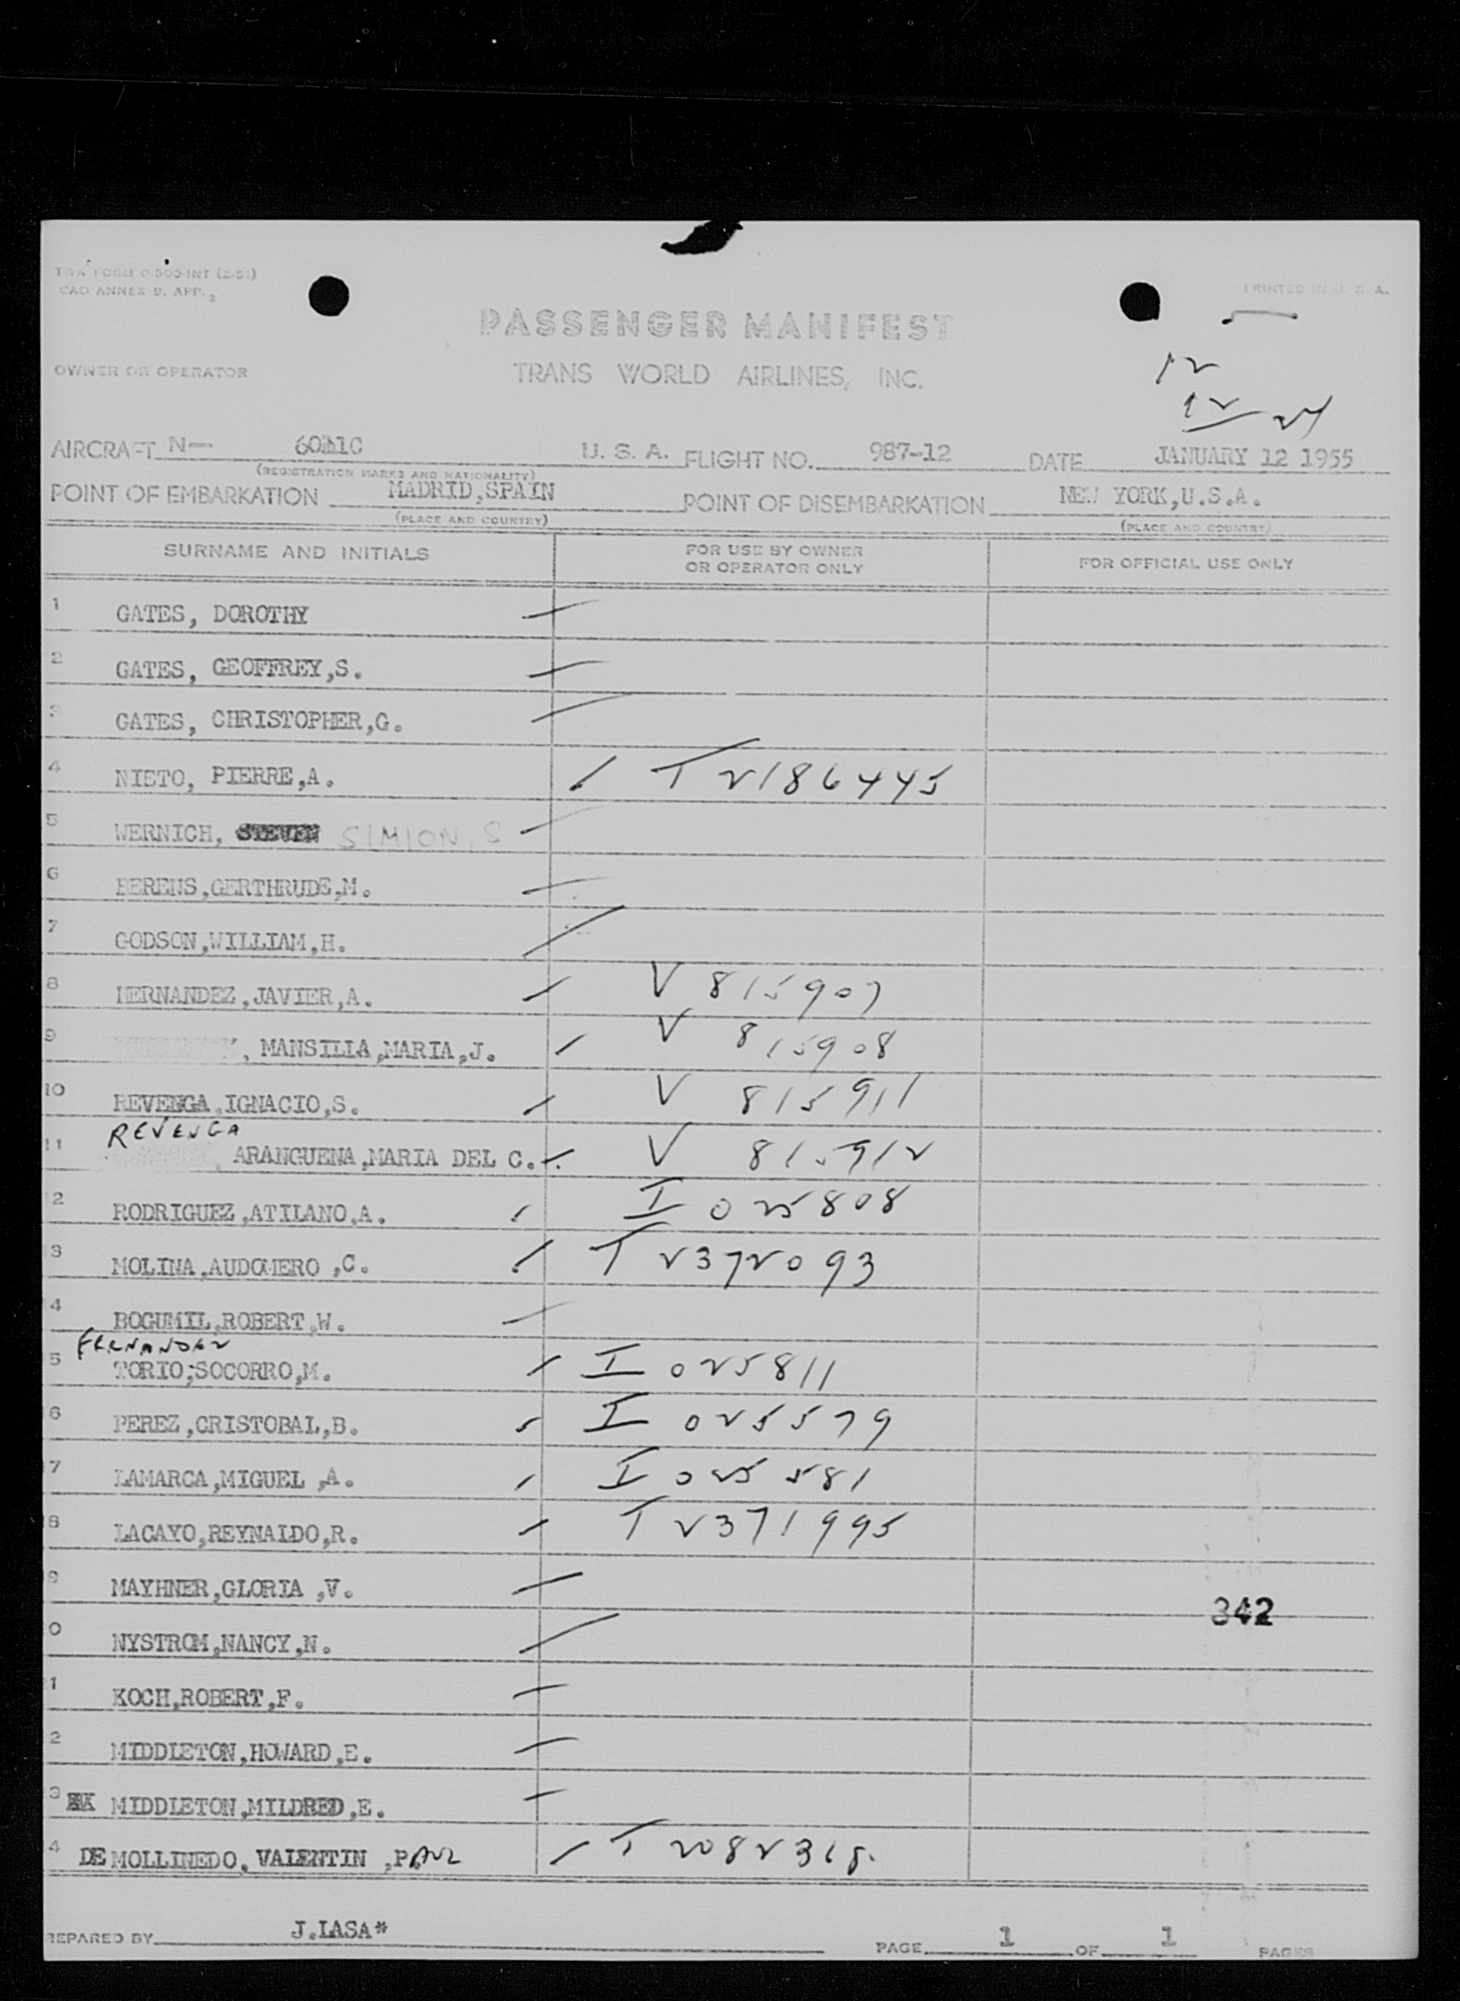 TWA FORM O-500-INT (2-51)
CAO ANNEX 9, APP. 2
PRINTED IN U. S. A.
PASSENGER MANIFEST
OWNER OR OPERATOR TRANS WORLD AIRLINES, INC.
12
12 24
AIRCRAFT N- U. S. A. FLIGHT NO. 987-12 DATE JANUARY 12 1955
(REGISTRATION MARKS AND NATIONALITY)
POINT OF EMBARKATION MADRID,SPAIN POINT OF DISEMBARKATION NEW YORK,U.S.A.
(PLACE AND COUNTRY) (PLACE AND COUNTRY)
SURNAME AND INITIALS FOR USE BY OWNER OR OPERATOR ONLY FOR OFFICIAL USE ONLY
1 GATES, DOROTHY
2 GATES, GEOFFREY,S.
3 GATES, CHRISTOPHER,G.
4 NIETO, PIERRE,A. T 2186445
5 WERNICH, STEVEN SIMION, S
6 BERENS,GERTHRUDE,M.
7 GODSON,WILLIAM,H.
8 HERNANDEZ,JAVIER,A. V 815907
9 , MANSILLA,MARIA,J. V 815908
10 REVENGA,IGNACIO,S. V 815911
REVENGA
11 ARANGUENA,MARIA DEL C. V 815912
2 RODRIGUEZ,ATILANO,A. I 025808
3 MOLINA,AUDOMERO ,C. T 2372093
4 BOGUMIL,ROBERT,W.
FERNANDEZ
5 TORIO;SOCORRO,M. I 025811
6 PEREZ,CRISTOBAL,B. I 025579
7 LAMARCA,MIGUEL ,A. I 025581
8 LACAYO,REYNALDO,R. T 2371995
9 MAYHNER,GLORIA ,V.
342
0 NYSTROM,NANCY,N.
1 KOCH,ROBERT,F.
2 MIDDLETON,HOWARD,E.
3 MIDDLETON,MILDRED,E.
4 DE MOLLINEDO, VALENTIN ,PAUL T 2082318.
REPARED BY J.LASA* PAGE 1 OF 1 PAGES